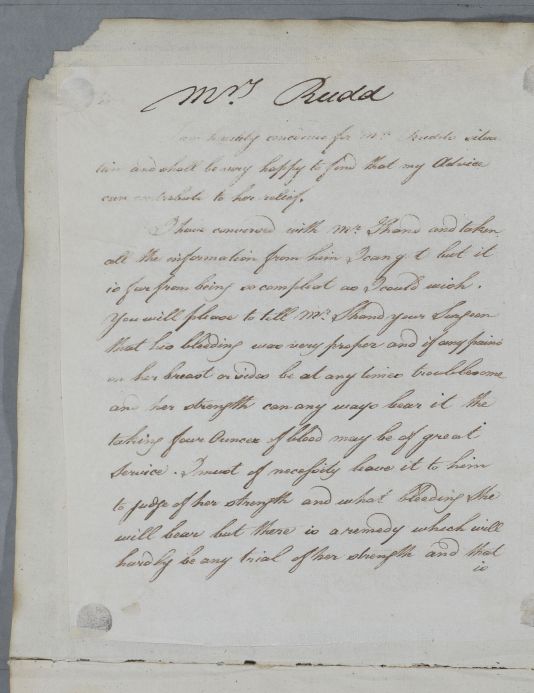 Mrs Rudd
am heartily concerned for Mrs Rudds situa
tion and shall be very happy to find that my Advice
can contribute to her relief.
I have conversed with Mr Shand and taken
all the information from him I can g t but it
is far from being so compleat as I could wish.
You will please to tell Mr Shand your Surgeon
that his bleeding was very proper and if any pains
in her breast or sides be at any times troublesome
and her strength can any ways bear it the
taking four Ounces of blood may be of great
Service. I must of necessity leave it to him
to judge of her strength and what bleeding she
will bear but there is a remedy which will
hardly be any trial of her strength and that
is